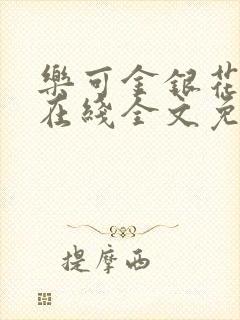 樂可金銀花
在綫全文免
提摩西